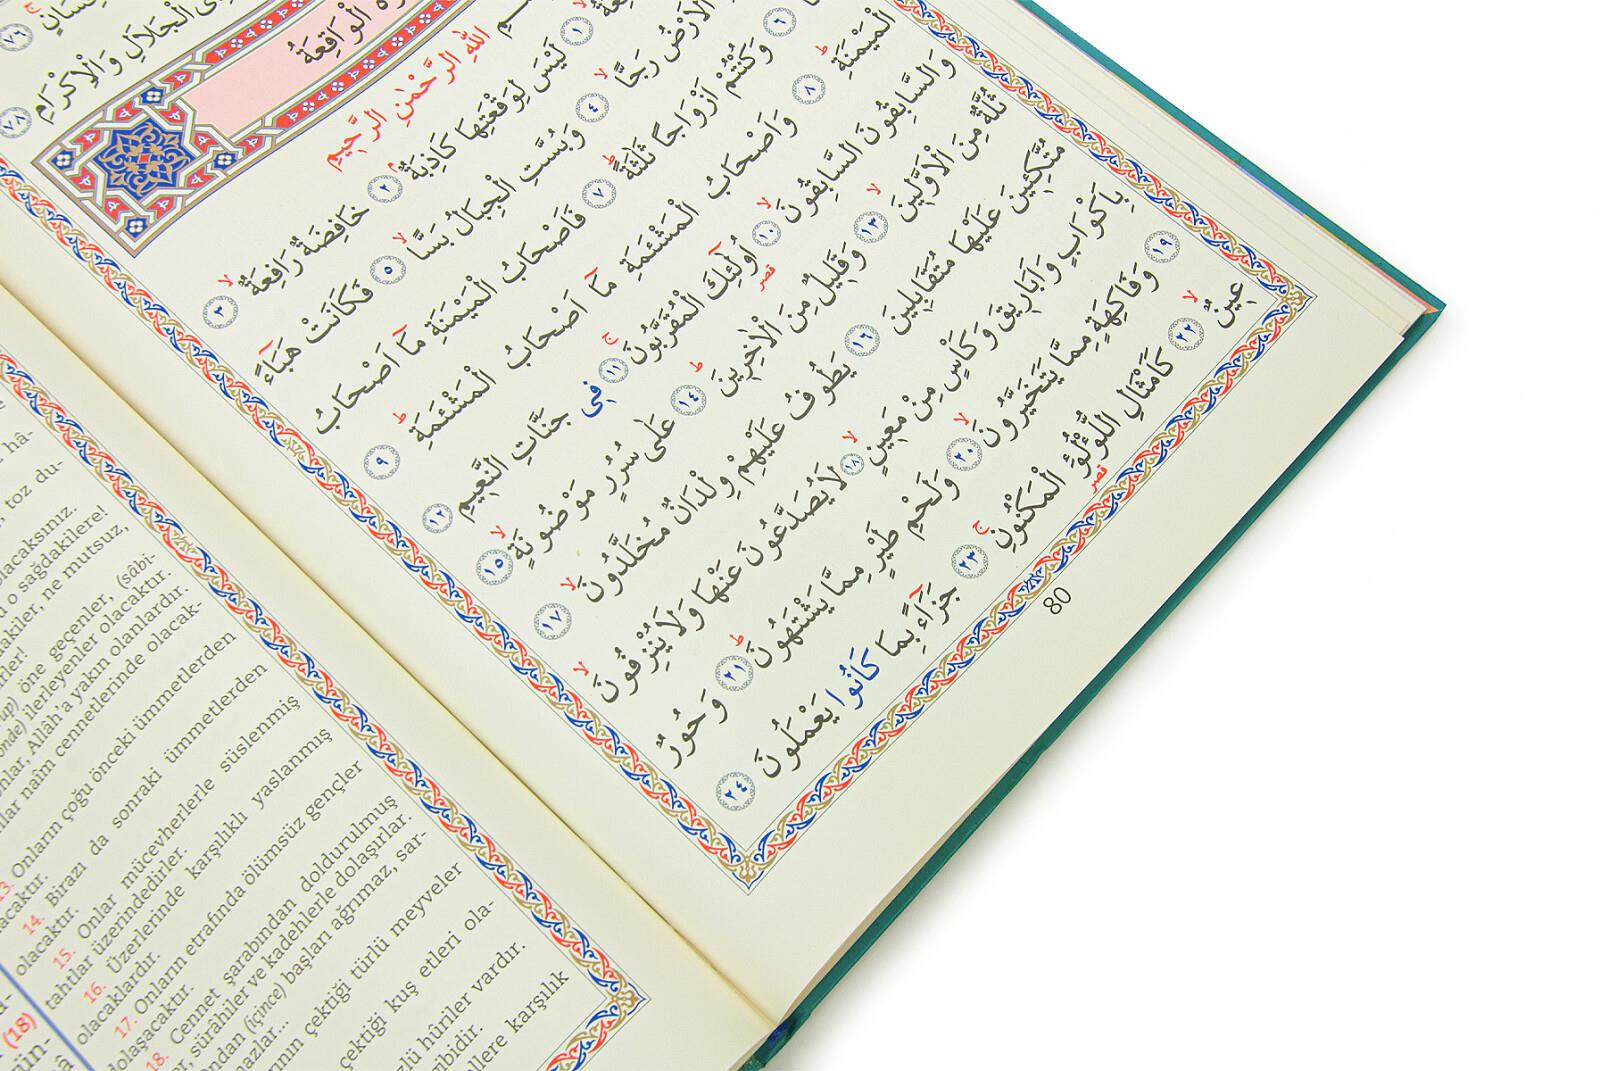 حِسَانٍ ٧٦
ذِى الْجَلَالِ وَالْاِكْرَامِ ٧٨
الْوَاقِعَةُ
اللّٰهِ الرَّحْمٰنِ الرَّحِيمِ
١ لَيْسَ لِوَقْعَتِهَا كَاذِبَةٌ ٢ خَافِضَةٌ رَافِعَةٌ ٣
الْاَرْضُ رَجًّا ٤ وَبُسَّتِ الْجِبَالُ بَسًّا ٥ فَكَانَتْ هَبَٓاءً
٦ وَكُنْتُمْ اَزْوَاجًا ثَلٰثَةً ٧ فَاَصْحَابُ الْمَيْمَنَةِ مَٓا اَصْحَابُ
الْمَيْمَنَةِ ٨ وَاَصْحَابُ الْمَشْئَمَةِ مَٓا اَصْحَابُ الْمَشْئَمَةِ ٩
وَالسَّابِقُونَ السَّابِقُونَ ١٠ اُولٰٓئِكَ الْمُقَرَّبُونَ ١١ فِى جَنَّاتِ النَّعِيمِ ١٢
قصر
ثُلَّةٌ مِنَ الْاَوَّلِينَ ١٣ وَقَلِيلٌ مِنَ الْاٰخِرِينَ ١٤ عَلٰى سُرُرٍ مَوْضُونَةٍ ١٥
مُتَّكِئِينَ عَلَيْهَا مُتَقَابِلِينَ ١٦ يَطُوفُ عَلَيْهِمْ وِلْدَانٌ مُخَلَّدُونَ ١٧
بِاَكْوَابٍ وَاَبَارِيقَ وَكَأْسٍ مِنْ مَعِينٍ ١٨ لَا يُصَدَّعُونَ عَنْهَا وَلَا يُنْزِفُونَ
١٩ وَفَاكِهَةٍ مِمَّا يَتَخَيَّرُونَ ٢٠ وَلَحْمِ طَيْرٍ مِمَّا يَشْتَهُونَ ٢١ وَحُورٌ
عِينٌ ٢٢ كَاَمْثَالِ اللُّؤْلُؤِ الْمَكْنُونِ ٢٣ جَزَٓاءً بِمَا كَانُوا يَعْمَلُونَ ٢٤
قصر
80
hâ-
toz du-
olacaksınız.
o sağdakiler!
ne mutsuz,
öne geçenler, (sâbi-
ilerleyenler olacaktır.
Allâh'a yakın olanlardır.
naîm cennetlerinde olacak-
13. Onların çoğu önceki ümmetlerden
olacaktır.
14. Birazı da sonraki ümmetlerden
olacaktır.
15. Onlar mücevherlerle süslenmiş
tahtlar üzerindedirler.
16. Üzerlerinde karşılıklı yaslanmış
olacaklardır.
17. Onların etrafında ölümsüz gençler
dolaşacaktır.
18. Cennet şarabından doldurulmuş
sürâhiler ve kadehlerle dolaşırlar.
(içince) başları ağrımaz, sar-
çektiği türlü meyveler
çektiği kuş etleri ola-
hûriler vardır.
karşılık
(18)